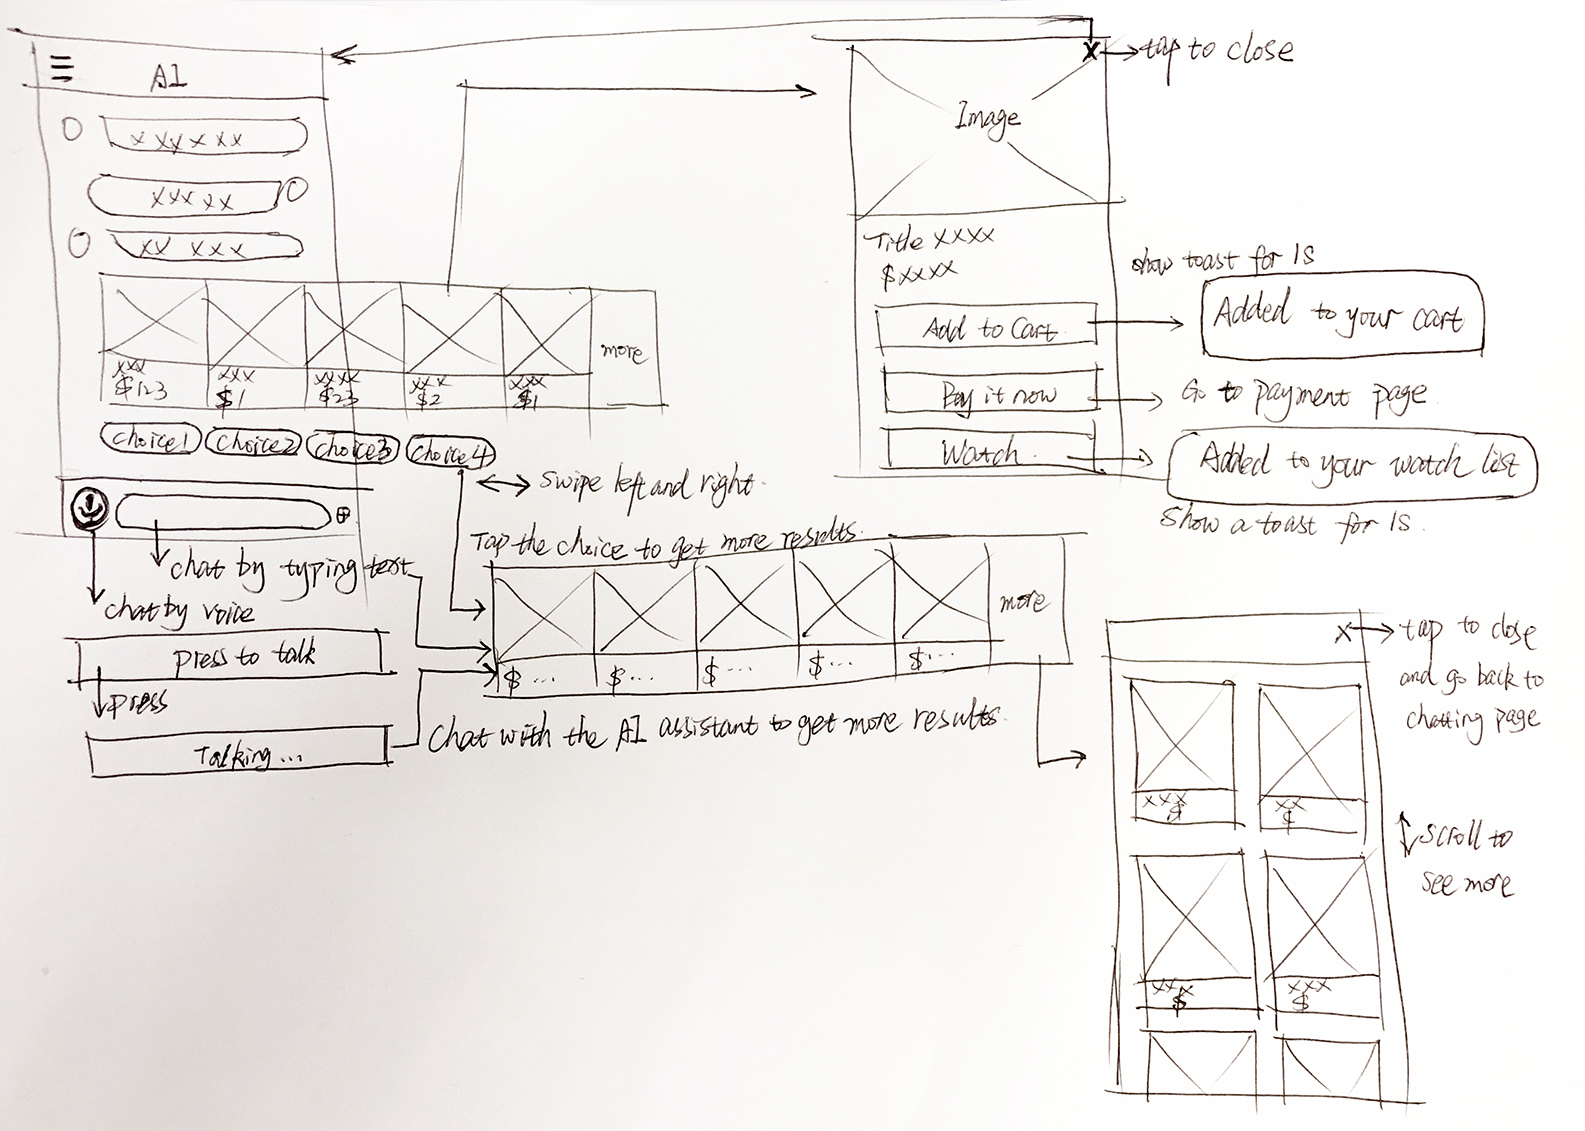 AI
x xx x xx
xxx xx
xx xxx
xxx
$123
xxx
$1
xxxx
$23
xxx
$2
xxx
$1
more
choice1
choice2
choice3
choice4
swipe left and right.
chat by typing text
chat by voice
press to talk
press
Talking...
Tap the choice to get more results.
$ ...
$ ...
$ ...
$ ...
$ ...
more
Chat with the AI assistant to get more results.
X
tap to close
Image
Title xxxx
$xxxx
Add to Cart
Buy it now
Watch
show toast for 1S
Added to your cart
Go to payment page
Added to your watch list
Show a toast for 1S.
X
tap to close
and go back to
chatting page
xxx
$
xx
$
scroll to
see more
xxx
$
xxx
$